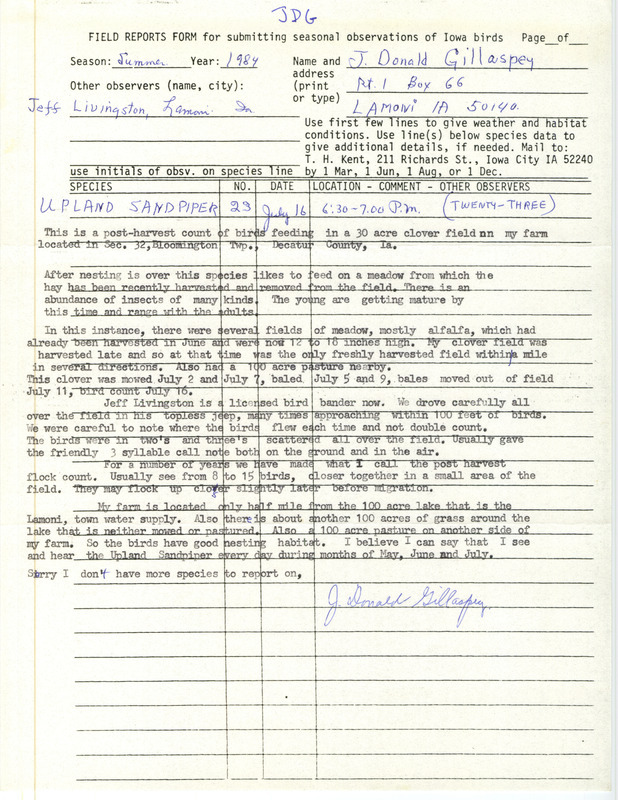 JDG
FIELD REPORTS FORM for submitting seasonal observations of Iowa birds Page__of__
Season: Summer Year: 1984 Name and J. Donald Gillaspey
address
Other observers (name, city): (print Rt. 1 Box 66
or type)
Jeff Livingston, Lamoni Ia LAMONI IA 50140.
Use first few lines to give weather and habitat
conditions. Use line(s) below species data to
give additional details, if needed. Mail to:
T. H. Kent, 211 Richards St., Iowa City IA 52240
use initials of obsv. on species line by 1 Mar, 1 Jun, 1 Aug, or 1 Dec.
SPECIES NO. DATE LOCATION - COMMENT - OTHER OBSERVERS
UPLAND SANDPIPER 23 July 16 6:30-7.00 P.m. (TWENTY-THREE)
This is a post-harvest count of birds feeding in a 30 acre clover field nn my farm
located in Sec. 32, Bloomington Twp., Decatur County, Ia.
After nesting is over this species likes to feed on a meadow from which the
hay has been recently harvested and removed from the field. There is an
abundance of insects of many kinds. The young are getting mature by
this time and range with the adults.
In this instance, there were several fields of meadow, mostly alfalfa, which had
already been harvested in June and were now 12 to 18 inches high. My clover field was
harvested late and so at that time was the only freshly harvested field within a mile
in several directions. Also had a 100 acre pasture nearby.
This clover was mowed July 2 and July 7, baled July 5 and 9, bales moved out of field
July 11, bird count July 16.
Jeff Livingston is a licensed bird bander now. We drove carefully all
over the field in his topless jeep, many times approaching within 100 feet of birds.
We were careful to note where the birds flew each time and not double count.
The birds were in two's and three's scattered all over the field. Usually gave
the friendly 3 syllable call note both on the ground and in the air.
For a number of years we have made what I call the post harvest
flock count. Usually see from 8 to 15 birds, closer together in a small area of the
field. They may flock up closer slightly later before migration.
My farm is located only half mile from the 100 acre lake that is the
Lamoni, town water supply. Also there is about another 100 acres of grass around the
lake that is neither mowed or pastured. Also a 100 acre pasture on another side of
my farm. So the birds have good nesting habitat. I believe I can say that I see
and hear the Upland Sandpiper every day during months of May, June and July.
Sorry I don't have more species to report on,
J. Donald Gillaspey